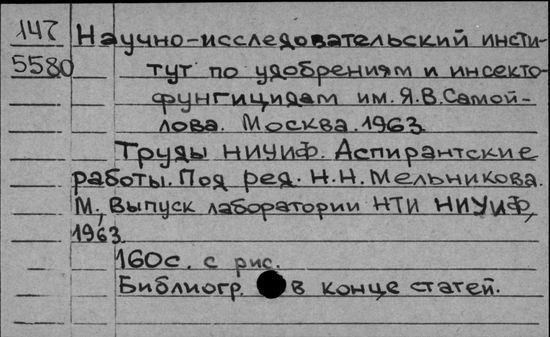 147 Научно-исследовательский инсти-
5580 тут по удобрениям и инсекто-
фунгицидам им. Я.В.Самой-
лова. Москва. 1963.
Труды НИУИФ. Аспирантские
работы. Под ред. Н.Н.Мельникова.
М., Выпуск лаборатории НТИ НИУИФ,
1963
160с. с рис.
Библиогр. в конце статей.